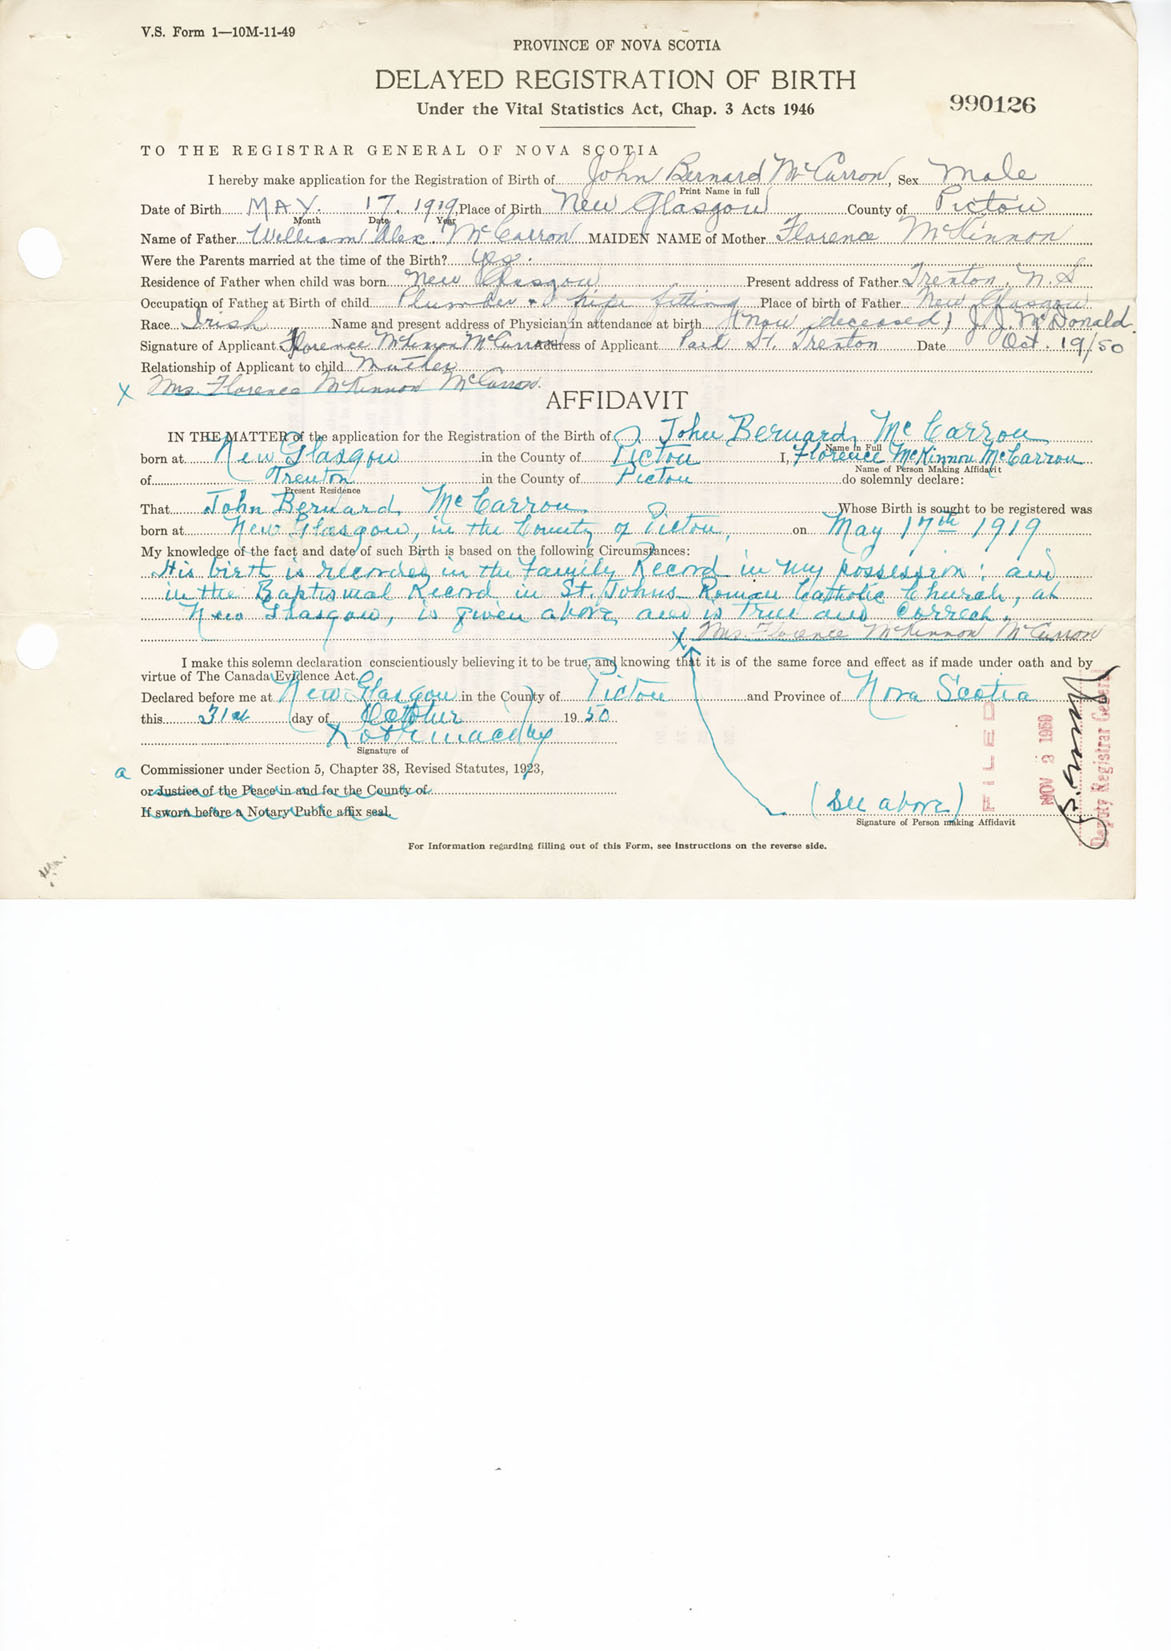 V.S. Form 1—10M-11-49
PROVINCE OF NOVA SCOTIA
DELAYED REGISTRATION OF BIRTH
Under the Vital Statistics Act, Chap. 3 Acts 1946
990126
TO THE REGISTRAR GENERAL OF NOVA SCOTIA
I hereby make application for the Registration of Birth of John Bernard McCarron, Sex Male
Print Name in full
Date of Birth MAY. 17. 1919, Place of Birth New Glasgow County of Pictou
Month Date Year
Name of Father William Alex. McCarron MAIDEN NAME of Mother Florence McKinnon
Were the Parents married at the time of the Birth? yes.
Residence of Father when child was born New Glasgow Present address of Father Trenton, N.S
Occupation of Father at Birth of child Plumber & pipe fitting Place of birth of Father New Glasgow
Race Irish Name and present address of Physician in attendance at birth (Now deceased) J. J. McDonald.
Signature of Applicant Florence McKinnon McCarron Address of Applicant St. Trenton Date Oct. 19/50
Relationship of Applicant to child Mother
x Mrs. Florence McKinnon McCarron.
AFFIDAVIT
IN THE MATTER of the application for the Registration of the Birth of John Bernard McCarron
Name in Full
born at New Glasgow in the County of Pictou I, Florence McKinnon McCarron
Name of Person Making Affidavit
of Trenton in the County of Pictou do solemnly declare:
Present Residence
That John Bernard McCarron Whose Birth is sought to be registered was
born at New Glasgow, in the County of Pictou, on May 17th 1919
My knowledge of the fact and date of such Birth is based on the following Circumstances:
His birth is recorded in the Family Record in my possession: and
in the Baptismal Record in St. Johns Roman Catholic Church, at
New Glasgow, is given above, and is true and correct.
x Mrs. Florence McKinnon McCarron
I make this solemn declaration conscientiously believing it to be true, and knowing that it is of the same force and effect as if made under oath and by
virtue of The Canada Evidence Act.
Declared before me at New Glasgow in the County of Pictou and Province of Nova Scotia
this 31st day of October 1950
Signature of
a Commissioner under Section 5, Chapter 38, Revised Statutes, 1923,
or Justice of the Peace in and for the County of
If sworn before a Notary Public affix seal.
(See above)
Signature of Person making Affidavit
FILED
NOV 3 1950
Deputy Registrar General
For Information regarding filling out of this Form, see instructions on the reverse side.